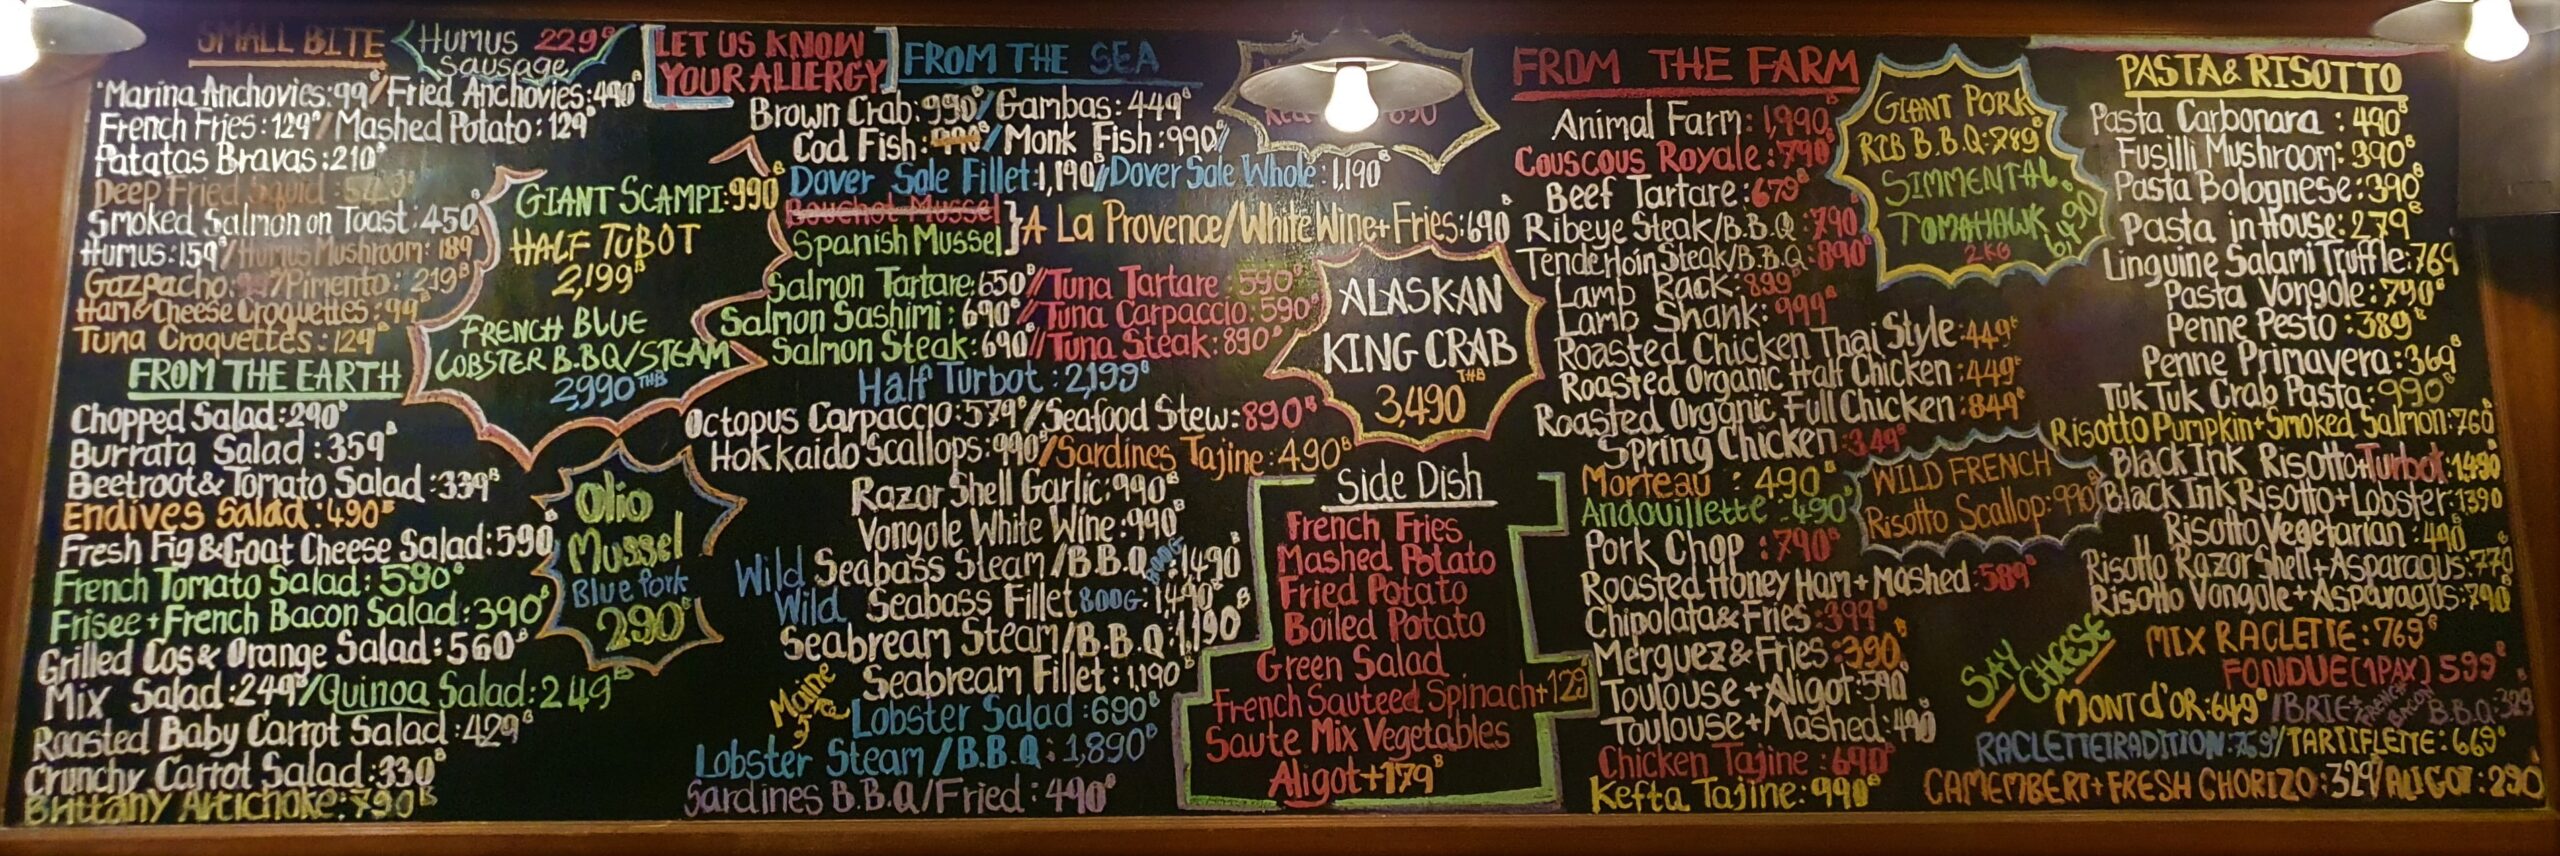 SMALL BITE
HUMUS 229฿
Sausage
Marina Anchovies:99฿/Fried Anchovies:490฿
French Fries:129฿/Mashed Potato:129฿
Patatas Bravas:210฿
Deep Fried Squid
Smoked Salmon on Toast:450
Humus:159฿/Humus Mushroom:189
Gazpacho: /Pimento:219฿
Ham&Cheese Croquettes:99฿
Tuna Croquettes:129฿
FROM THE EARTH
Chopped Salad:290฿
Burrata Salad:359฿
Beetroot&Tomato Salad:339฿
Endives Salad:490฿
Fresh Fig&Goat Cheese Salad:590
French Tomato Salad:590฿
Frisee+French Bacon Salad:390฿
Grilled Cos&Orange Salad:560฿
Mix Salad:249฿/Quinoa Salad:249฿
Roasted Baby Carrot Salad:429฿
Crunchy Carrot Salad:330฿
Brittany Artichoke:790฿
GIANT SCAMPI:990฿
HALF TUBOT
2,199฿
FRENCH BLUE
LOBSTER B.BQ/STEAM
2,990 THB
Olio
Mussel
Blue Pork
290฿
LET US KNOW
YOUR ALLERGY
FROM THE SEA
Brown Crab:990฿/Gambas:449฿
Cod Fish:990฿/Monk Fish:990฿/
Dover Sole Fillet:1,190฿/Dover Sole Whole:1,190฿
Bouchot Mussel
Spanish Mussel}A La Provence/White Wine+Fries:690฿
Salmon Tartare:650฿//Tuna Tartare:590฿
Salmon Sashimi:690฿//Tuna Carpaccio:590฿
Salmon Steak:690฿//Tuna Steak:890฿
Half Turbot:2,199฿
Octopus Carpaccio:579฿/Seafood Stew:890฿
Hokkaido Scallops:990฿/Sardines Tajine:490฿
Razor Shell Garlic:990฿
Vongole White Wine:990฿
Wild Seabass Steam/B.B.Q 800G:1490฿
Wild Seabass Fillet 800G:1490฿
Seabream Steam/B.B.Q:1,190฿
Seabream Fillet:1,190฿
Maine
Lobster Salad:690฿
Lobster Steam/B.B.Q:1,890฿
Sardines B.B.Q/Fried:490฿
ALASKAN
KING CRAB
THB
3,490
Side Dish
French Fries
Mashed Potato
Fried Potato
Boiled Potato
Green Salad
French Sauteed Spinach+129
Saute Mix Vegetables
Aligot+179฿
FROM THE FARM
Animal Farm:1,990฿
Couscous Royale:790฿
Beef Tartare:679฿
Ribeye Steak/B.B.Q:790฿
Tenderloin Steak/B.B.Q:890฿
Lamb Rack:899฿
Lamb Shank:999฿
Roasted Chicken Thai Style:449฿
Roasted Organic Half Chicken:449฿
Roasted Organic Full Chicken:849฿
Spring Chicken:349฿
Morteau:490฿
Andouillette:490฿
Pork Chop:790฿
Roasted Honey Ham+Mashed:589฿
Chipolata&Fries:399฿
Merguez&Fries:390฿
Toulouse+Aligot:590฿
Toulouse+Mashed:490
Chicken Tajine:690฿
Kefta Tajine:990฿
GIANT PORK
RIB B.B.Q:789฿
SIMMENTAL
TOMAHAWK 6,490
2KG
WILD FRENCH
Risotto Scallop:990฿
PASTA&RISOTTO
Pasta Carbonara:490฿
Fusilli Mushroom:390฿
Pasta Bolognese:390฿
Pasta in House:279฿
Linguine Salami Truffle:769
Pasta Vongole:790฿
Penne Pesto:389฿
Penne Primavera:369฿
Tuk Tuk Crab Pasta:990฿
Risotto Pumpkin+Smoked Salmon:760฿
Black Ink Risotto+Turbot:1,490
Black Ink Risotto+Lobster:1390
Risotto Vegetarian:490฿
Risotto Razor Shell+Asparagus:770
Risotto Vongole+Asparagus:790฿
SAY CHEESE
MIX RACLETTE:769฿
FONDUE(1PAX)599฿
MONT d'OR:649฿/BRIE+FRENCH BACON B.B.Q:329
RACLETTETRADITION:769฿/TARTIFLETTE:669฿
CAMEMBERT+FRESH CHORIZO:329/ALIGOT:290